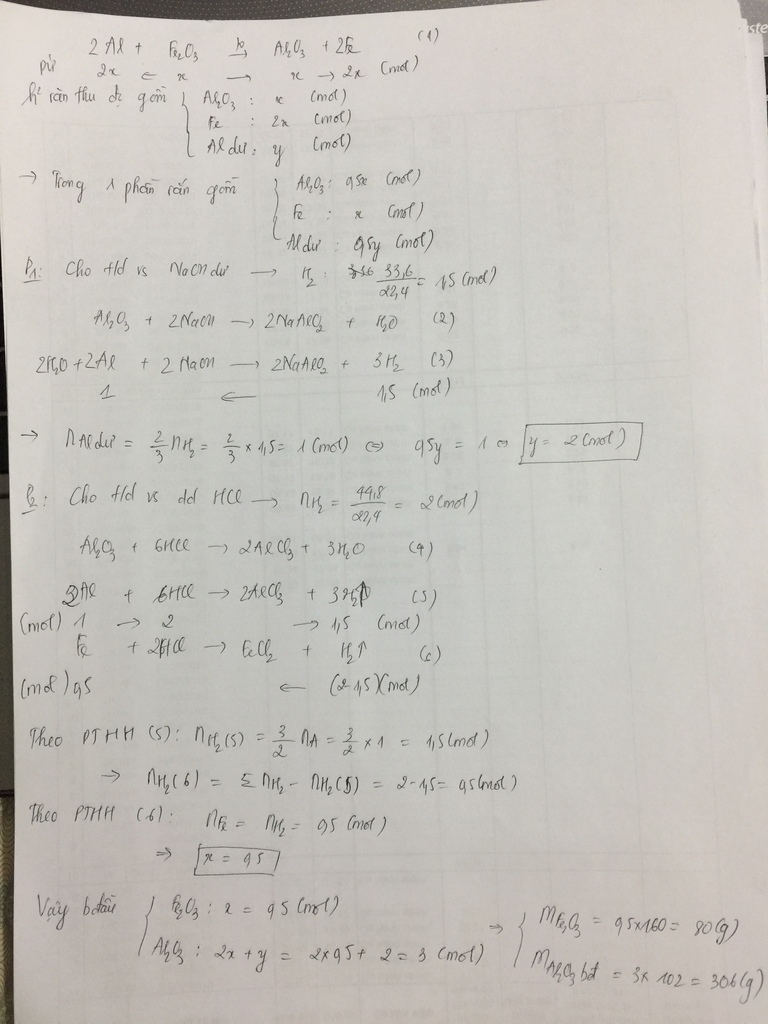 2Al + Fe₂O₃ →(t°) Al₂O₃ + 2Fe (1)
pứ 2x ← x → x → 2x (mol)
h² rắn thu đc gồm { Al₂O₃ : x (mol)
Fe : 2x (mol)
Al dư : y (mol)
→ Trong 1 phần rắn gồm { Al₂O₃ : 0,5x (mol)
Fe : x (mol)
Al dư : 0,5y (mol)
P1: Cho t/d vs NaOH dư → H₂ : 33,6/22,4 = 1,5 (mol)
Al₂O₃ + 2NaOH → 2NaAlO₂ + H₂O (2)
2H₂O + 2Al + 2NaOH → 2NaAlO₂ + 3H₂ (3)
1 ← 1,5 (mol)
→ nAl dư = 2/3 nH₂ = 2/3 × 1,5 = 1 (mol) ⇔ 0,5y = 1 ⇔ y = 2 (mol)
P2: Cho t/d vs dd HCl → nH₂ = 44,8/22,4 = 2 (mol)
Al₂O₃ + 6HCl → 2AlCl₃ + 3H₂O (4)
2Al + 6HCl → 2AlCl₃ + 3H₂↑ (5)
(mol) 1 → 2 → 1,5 (mol)
Fe + 2HCl → FeCl₂ + H₂↑ (6)
(mol) 0,5 ← (2-1,5)(mol)
Theo PTHH (5): nH₂(5) = 3/2 nA = 3/2 × 1 = 1,5 (mol)
→ nH₂(6) = Σ nH₂ - nH₂(5) = 2-1,5 = 0,5 (mol)
Theo PTHH (6): nFe = nH₂ = 0,5 (mol)
⇒ x = 0,5
Vậy bđầu { Fe₂O₃ : x = 0,5 (mol) ⇒ { mFe₂O₃ = 0,5×160 = 80 (g)
Al₂O₃ : 2x + y = 2×0,5 + 2 = 3 (mol) mAl₂O₃ bđ = 3 × 102 = 306 (g)